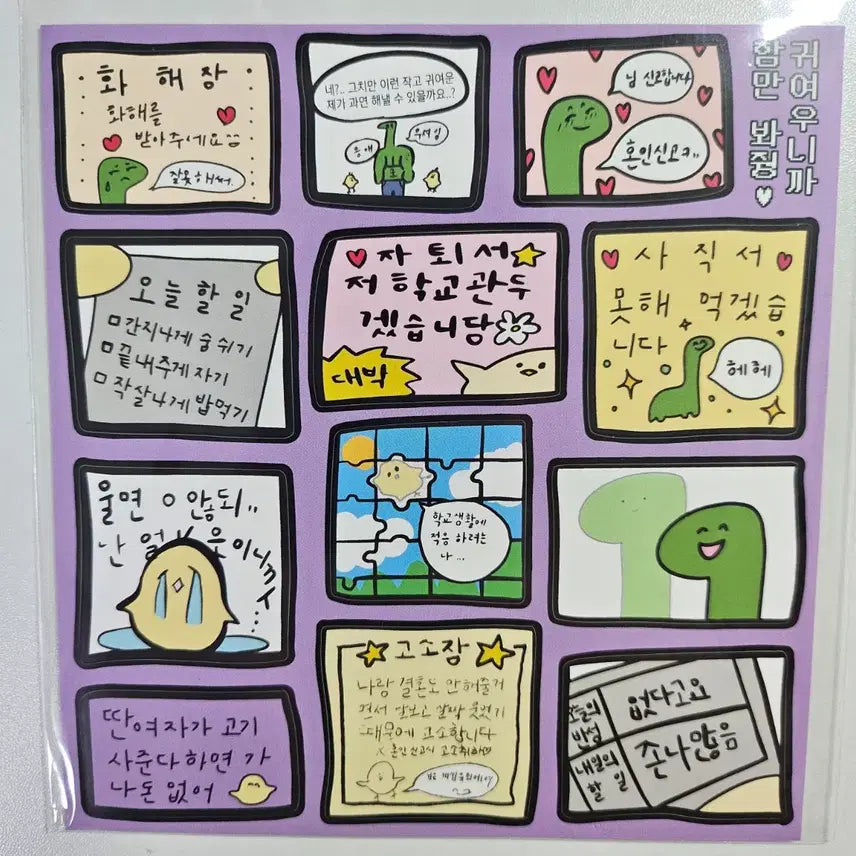 귀여우니까
함만 봐줭
화 해 장
화해를
받아주세요
잘못해써.
네?.. 그치만 이런 작고 귀여운
제가 과연 해낼 수 있을까요..?
응애
님 신고합니다
혼인신고ㅋ
오늘 할 일
간지나게 숨쉬기
끝내주게 자기
작살나게 밥먹기
자 퇴 서
저 학교관두
겠습니담
대박
사 직 서
못해 먹겠습
니다
헤헤
울면 안돼
난
학교생활에
적응 하려는
나...
고소장
나랑 결혼도 안해줄거
면서 날보고 활짝 웃었기
때문에 고소합니다
딴여자가 고기
사준다하면 가
나돈 없어
오늘의
반성
없다고요
내일의
할 일
존나많음